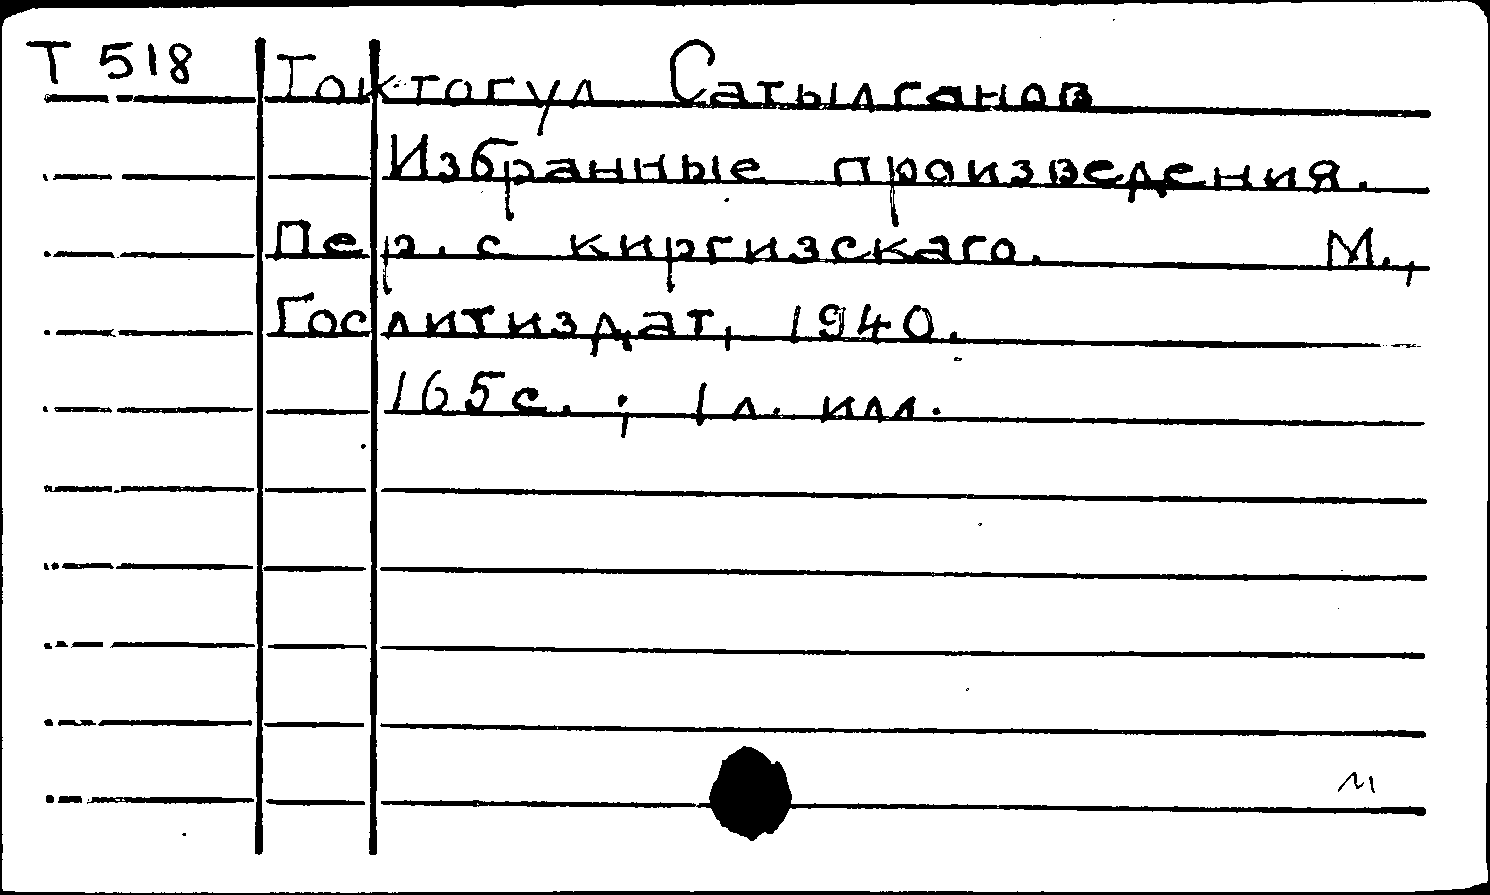 Т 518 Токтогул Сатылганов
Избранные произведения.
Пер. с киргизскаго. М.,
Гослитиздат, 1940.
165с. ; 1 л. илл.
м